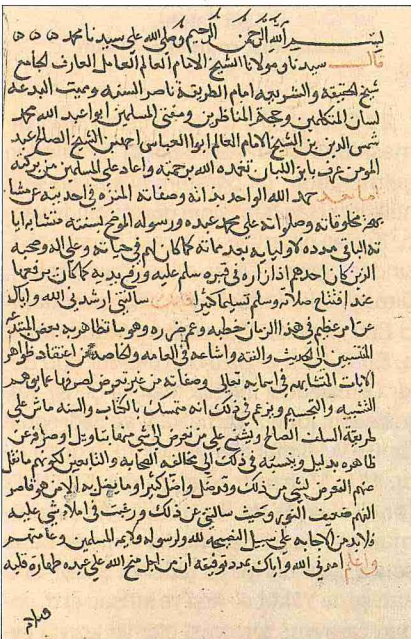 بسم الله الرحمن الرحيم وصلى الله على سيدنا محمد
قال سيدنا ومولانا الشيخ الامام العالم العامل العارف الجامع
شيخ الحقيقة والشريعه امام الطريقة ناصر السنه ومميت البدعة
لسان المتكلمين وحجة المناظرين ومفتى المسلمين ابو عبد الله محمد
شمس الدين بن الشيخ الامام العالم ابو العباس احمد بن الشيخ الصالح عبد
المومن عرف بابن اللبان تغمده الله برحمته واعاد على المسلمين من بركته
اما بعد حمد الله الواحد بذاته وصفاته المنزه في احديته عن مشا
بهة مخلوقاته وصلواته على محمد عبده ورسوله الموضح بسنته متشابه ايا
ته الباقى مدده لاوليايه بعد مماته كما كان لهم في حياته وعلى اله وصحبه
الذين كان احدهم اذا زاره في قبره سلم عليه ورفع يديه كما كان يرفعهما
عند افتتاح صلاته وسلم تسليما كثيرا سالتنى ارشدنى الله واياك
عن امر عظيم في هذا الزمان خطبه وعم ضرره وهو ما تظاهر به بعض المبتدعه
المنتسبين الى الحديث والفقه واشاعه في العامه والخاصه من اعتقاد ظواهر
الايات المتشابهه في اسمايه تعالى وصفاته من غير تعرض لصرفها عما يوهم
التشبيه والتجسيم ويزعم في ذلك انه متمسك بالكتاب والسنه ماش على
طريقة السلف الصالح ويشنع على من تعرض الى شى منها بتاويل او صرفه عن
ظاهره بدليل وينسبه في ذلك الى مخالفة الصحابه والتابعين لكونهم ما نقل
عنهم التعرض لشى من ذلك وقد ضل واضل كثيرا وما يضل به الا من هو قاصر
الفهم ضعيف النور وحيث سالتنى عن ذلك ورغبت في املاء شى عليه
فلابد من الاجابه على سبيل النصيحه لله ولرسوله ولايمة المسلمين وعامتهم
واعلم امدنى الله واياك بمدد توفيقه ان من اجل منح الله على عبده طهارة قلبه